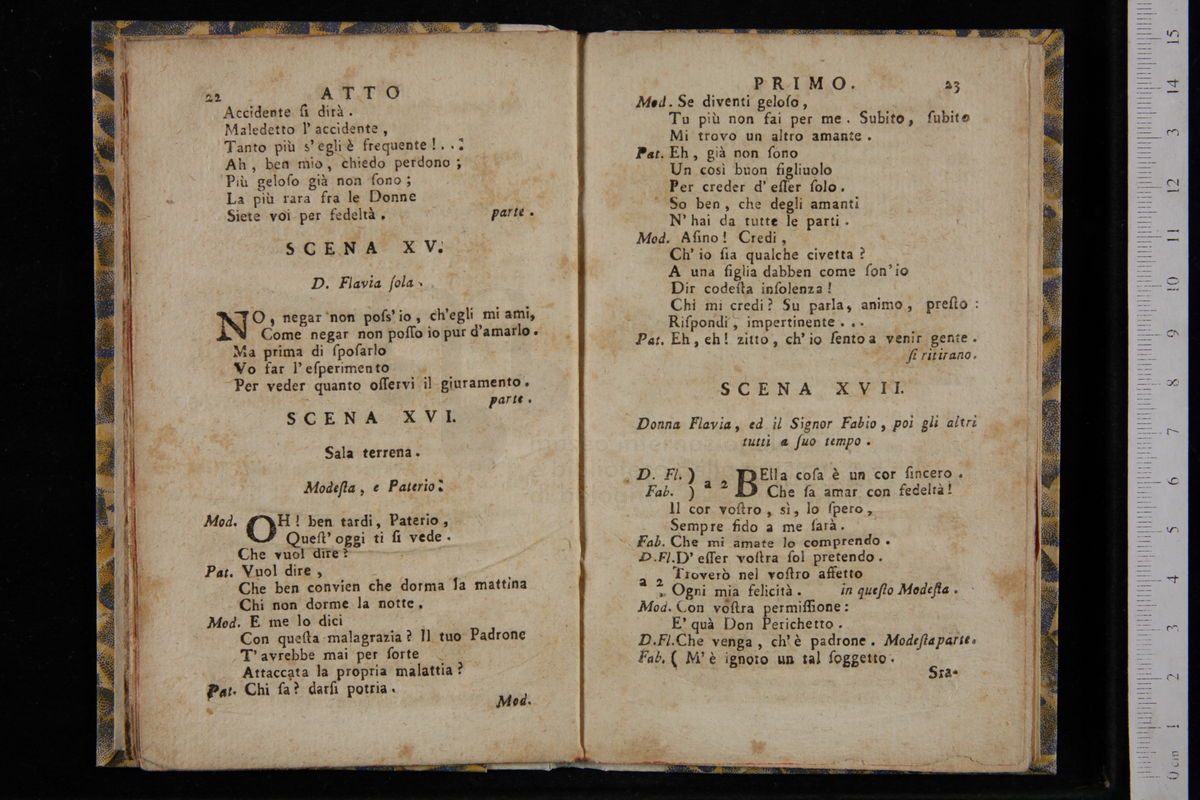 22 ATTO
Accidente ſi dirà.
Maledetto l'accidente,
Tanto più s'egli è frequente!..:
Ah, ben mio, chiedo perdono;
Più geloſo già non ſono;
La più rara fra le Donne
Siete voi per fedeltà. parte.
SCENA XV.
D. Flavia ſola.
NO, negar non poſs'io, ch'egli mi ami,
Come negar non poſſo io pur d'amarlo.
Ma prima di ſpoſarlo
Vo far l'eſperimento
Per veder quanto oſſervi il giuramento.
parte.
SCENA XVI.
Sala terrena.
Modeſta, e Paterio:
Mod. OH! ben tardi, Paterio,
Queſt'oggi ti ſi vede.
Che vuol dire?
Pat. Vuol dire,
Che ben convien che dorma la mattina
Chi non dorme la notte.
Mod. E me lo dici
Con queſta malagrazia? Il tuo Padrone
T'avrebbe mai per ſorte
Attaccata la propria malattia?
Pat. Chi ſa? darſi potria.
Mod.
PRIMO. 23
Mod. Se diventi geloſo,
Tu più non fai per me. Subito, ſubito
Mi trovo un altro amante.
Pat. Eh, già non ſono
Un così buon figliuolo
Per creder d'eſſer ſolo.
So ben, che degli amanti
N'hai da tutte le parti.
Mod. Aſino! Credi,
Ch'io ſia qualche civetta?
A una figlia dabben come ſon'io
Dir codeſta inſolenza!
Chi mi credi? Su parla, animo, preſto:
Riſpondi, impertinente...
Pat. Eh, eh! zitto, ch'io ſento a venir gente.
ſi ritirano.
SCENA XVII.
Donna Flavia, ed il Signor Fabio, poi gli altri
tutti a ſuo tempo.
D. Fl. ) a 2 BElla coſa è un cor ſincero.
Fab. ) Che ſa amar con fedeltà!
Il cor voſtro, sì, lo ſpero,
Sempre fido a me ſarà.
Fab. Che mi amate lo comprendo.
D.Fl. D'eſſer voſtra ſol pretendo.
a 2 Troverò nel voſtro affetto
Ogni mia felicità. in queſto Modeſta.
Mod. Con voſtra permiſſione:
E' quà Don Perichetto.
D.Fl. Che venga, ch'è padrone. Modeſta parte.
Fab. ( M'è ignoto un tal ſoggetto.
Sra-
0 cm 1 2 3 4 5 6 7 8 9 10 11 12 13 14 15